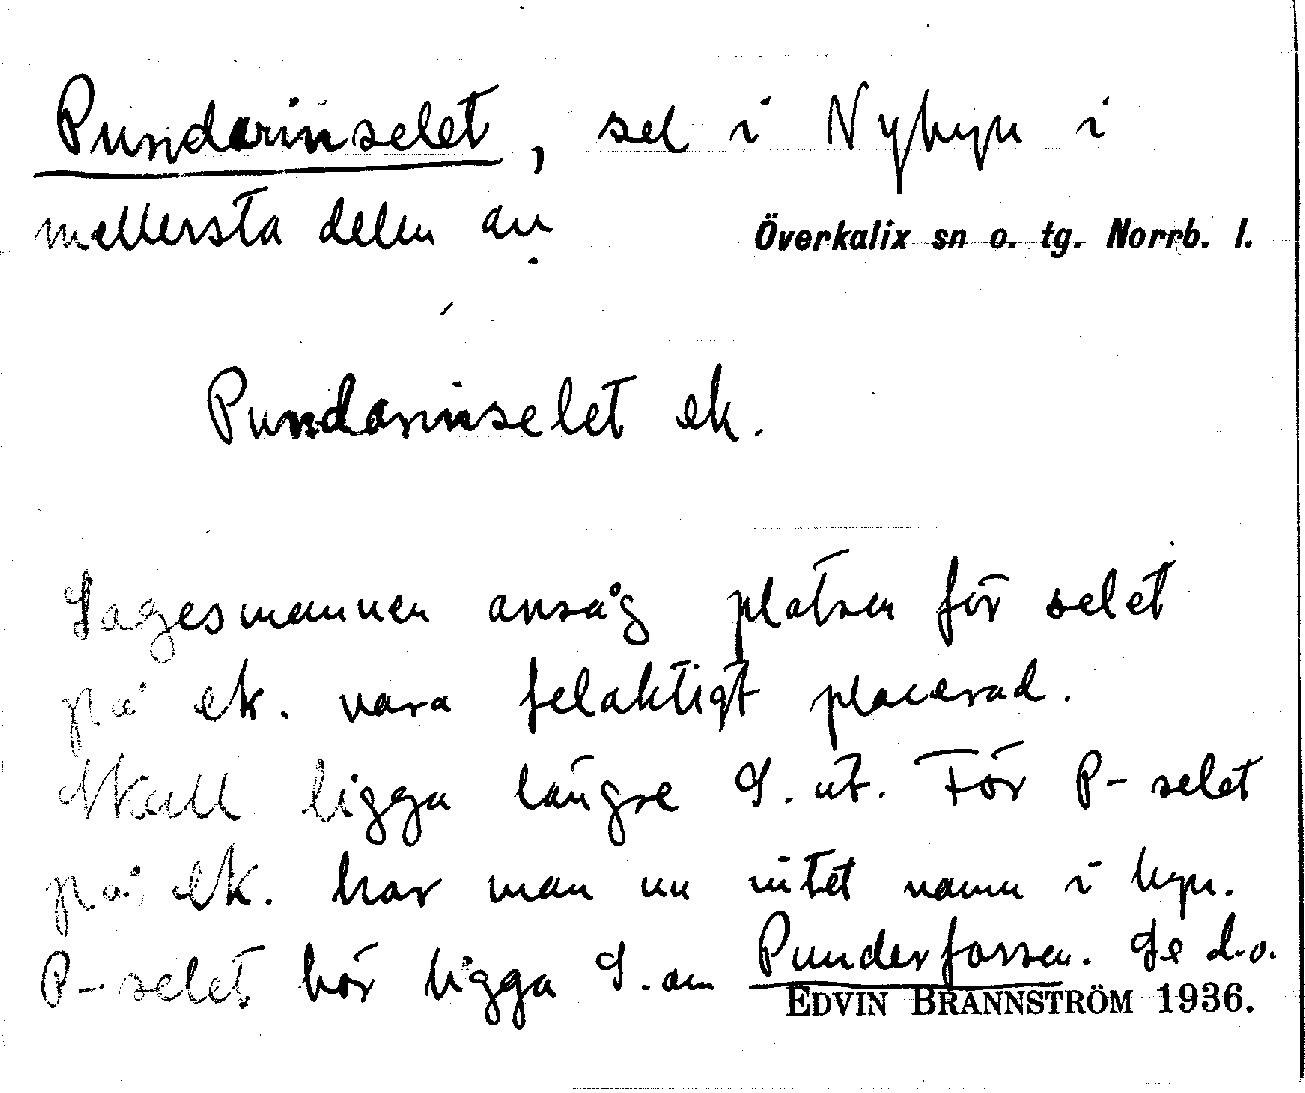 Pundarinselet, sel i Nybyn i
mellersta delen av
Överkalix sn o. tg. Norrb. l.
Pundarinselet ek.
Sagesmannen ansåg platsen för selet
på ek. vara felaktigt placerad.
Skall ligga längre S. ut. För P-selet
på ek. har man nu intet namn i byn.
P-selet bör ligga S. om Punderforsen. Se d.o.
EDVIN BRÄNNSTRÖM 1936.